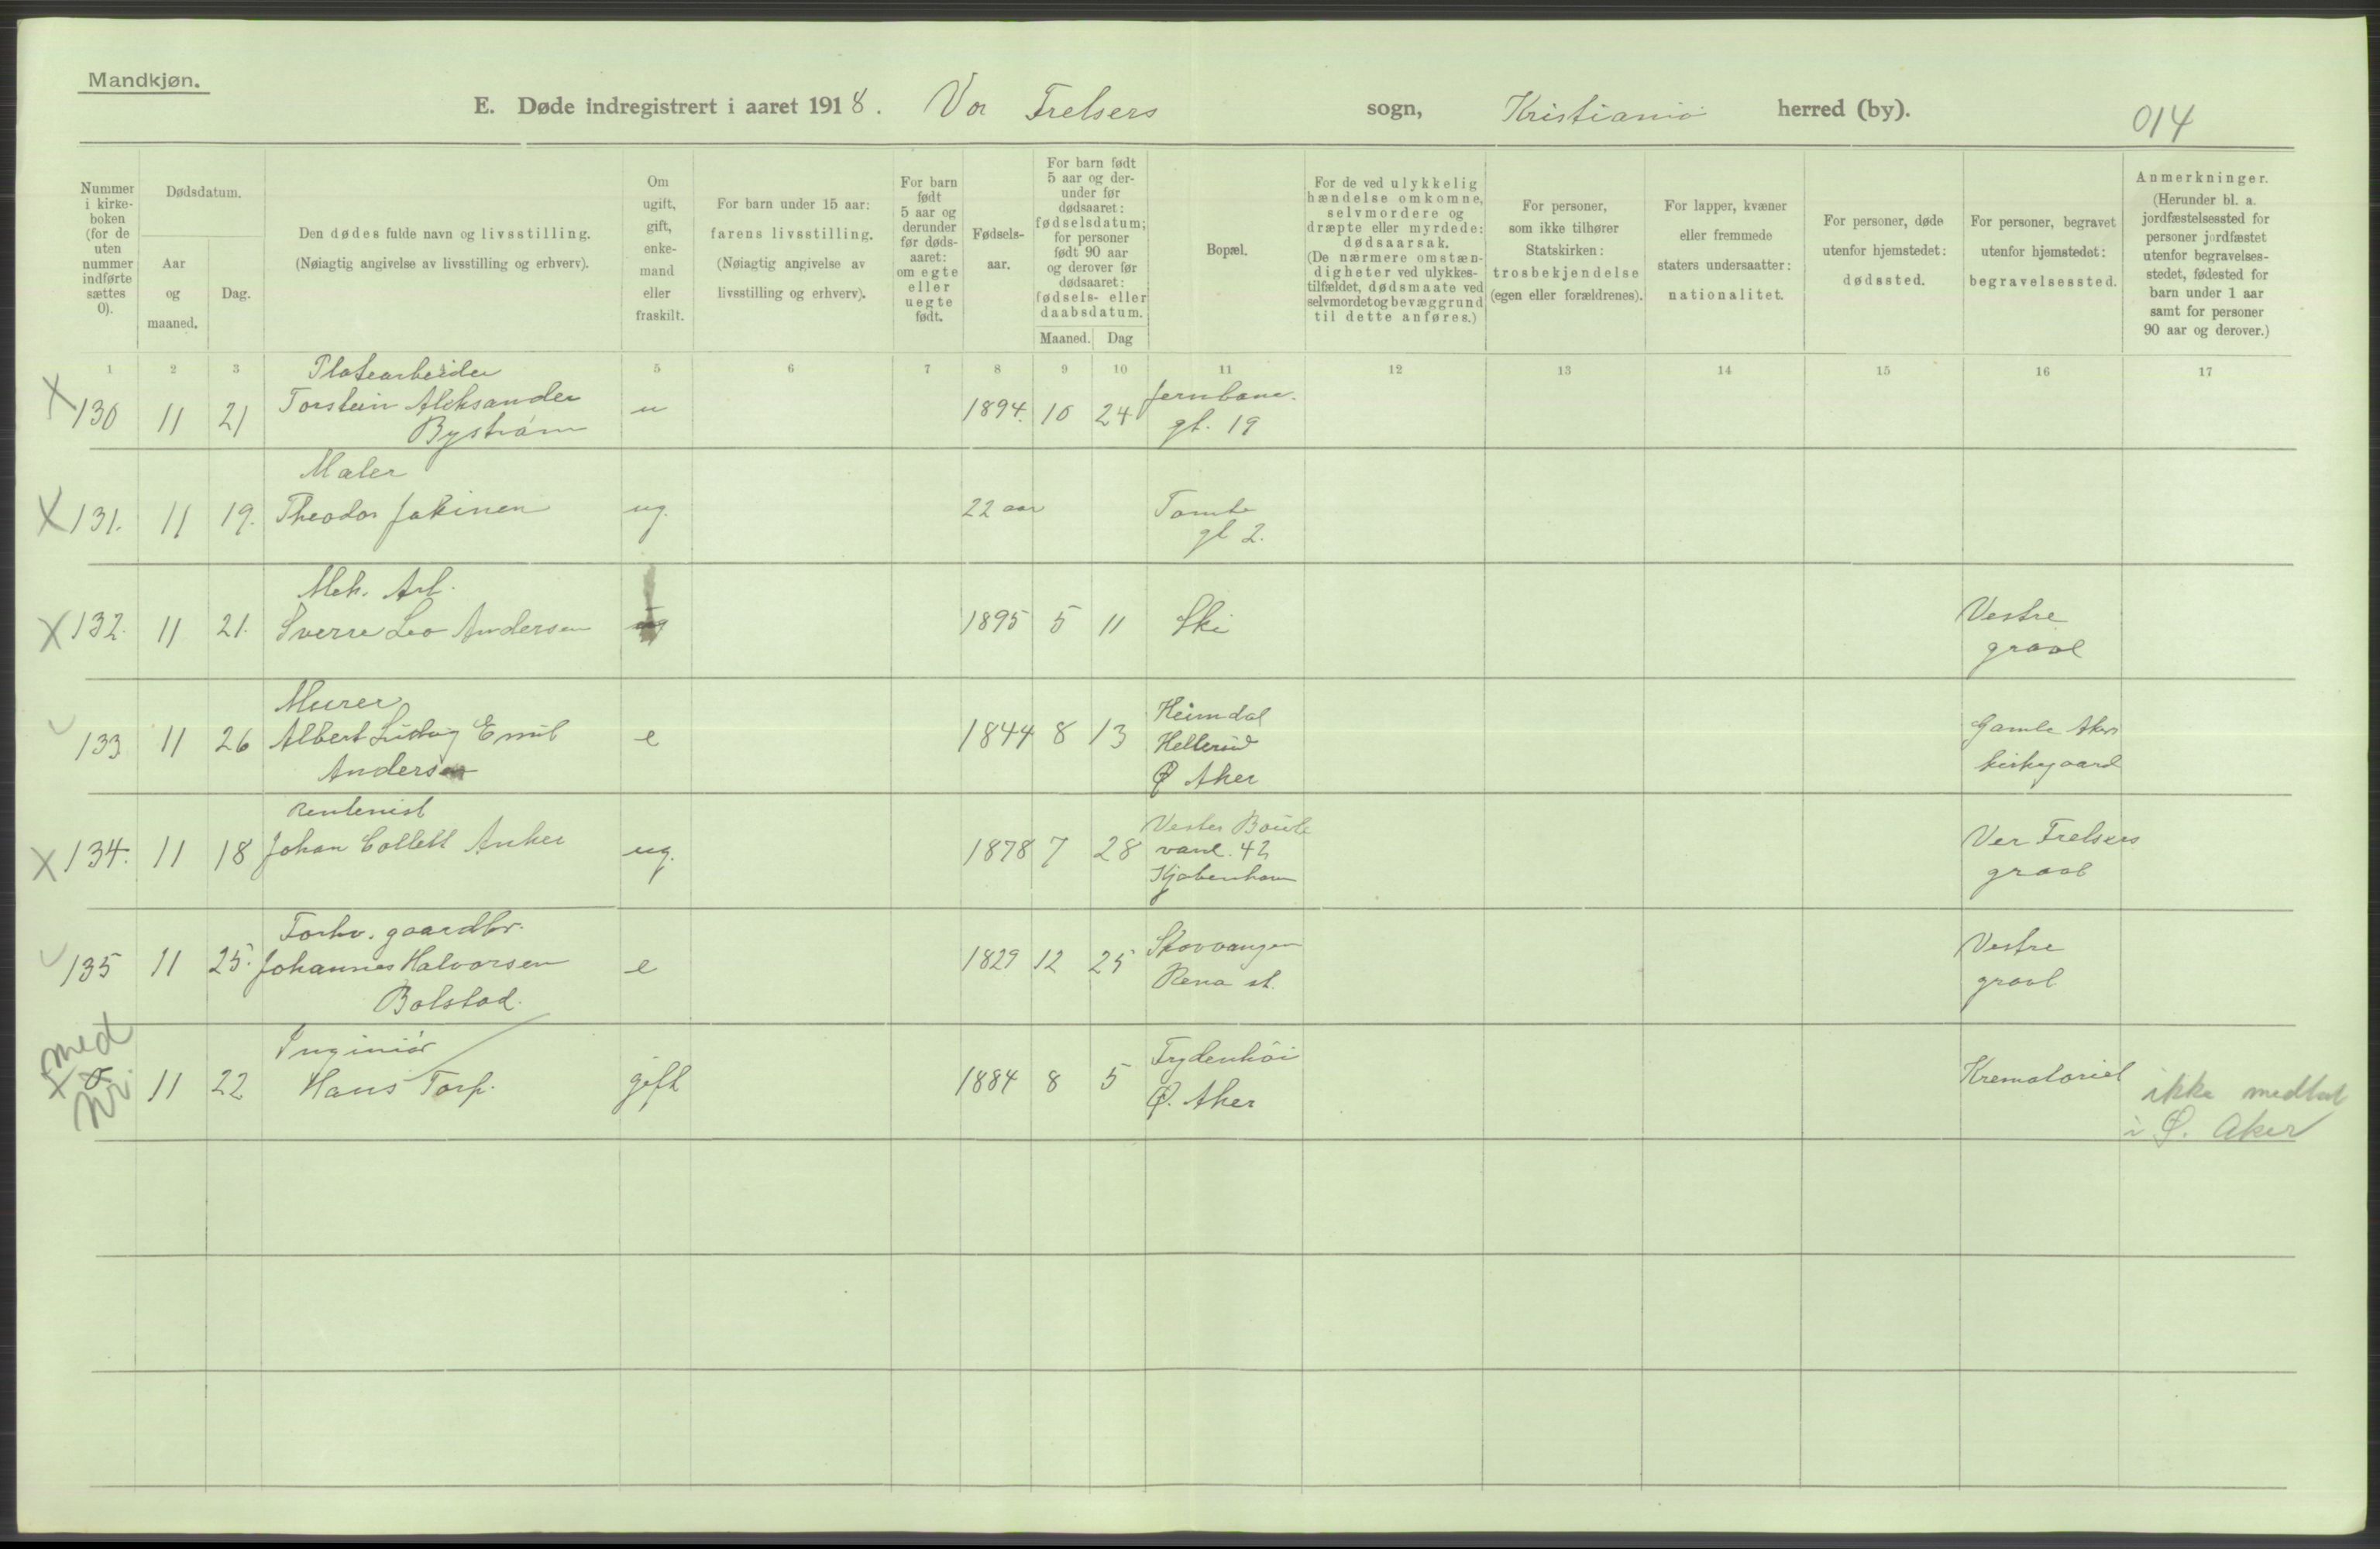 Mandkjøn.
E. Døde indregistrert i aaret 1918. Vor Frelsers sogn, Kristiania herred (by). 014
Nummer i kirke-boken (for de uten nummer indførte sættes 0).
Dødsdatum.
Aar og maaned.
Dag.
Den dødes fulde navn og livsstilling.
(Nøiagtig angivelse av livsstilling og erhverv).
Om ugift, gift, enke-mand eller fraskilt.
For barn under 15 aar:
farens livsstilling.
(Nøiagtig angivelse av
livsstilling og erhverv).
For barn født 5 aar og derunder før døds-aaret: om egte eller uegte født.
Fødsels-aar.
For barn født 5 aar og der-under før dødsaaret: fødselsdatum; for personer født 90 aar og derover før dødsaaret: fødsels- eller daabsdatum.
Maaned. Dag
Bopæl.
For de ved ulykkelig hændelse omkomne, selvmordere og dræpte eller myrdede: dødsaarsak. (De nærmere omstæn-digheter ved ulykkes-tilfældet, dødsmaate ved selvmordet og bevæggrund til dette anføres.)
For personer, som ikke tilhører Statskirken: trosbekjendelse (egen eller forældrenes).
For lapper, kvæner eller fremmede staters undersaatter: nationalitet.
For personer, døde utenfor hjemstedet: dødssted.
For personer, begravet utenfor hjemstedet: begravelsessted.
Anmerkninger. (Herunder bl. a. jordfæstelsessted for personer jordfæstet utenfor begravelses-stedet, fødested for barn under 1 aar samt for personer 90 aar og derover.)
1 2 3 5 6 7 8 9 10 11 12 13 14 15 16 17
Platearbeider
X 130 11 21 Torstein Aleksander u 1894. 10 24 Jernbane.
Bystrøm gt. 19
Maler
X 131. 11 19. Theodor Jakinen ug. 22 aar Tomte
gt 2.
Mek. Arb.
X 132. 11 21. Sverre Leo Andersen ug 1895 5 11 Ski Vestre
gravl
Murer
133 11 26 Albert Ludvig Emil e 1844 8 13 Heimdal Gamle Akers
Andersen Ø Aker kirkegaard
Rentenist
X 134. 11 18 Johan Collett Anker ug. 1878 7 28 Vester Boule
vard. 42 Vor Frelsers
Kjøbenhavn gravl
Forhv. gaardbr.
135 11 25. Johannes Halvorsen e 1829 12 25 Skovvangen Vestre
Bolstad. Rena st. gravl
Inginiør
x med
Nr. 11 22 Hans Torp. gift 1884 8 5 Frydenhøi Krematoriet
Ø. Aker
ikke medtat
i Ø. Aker